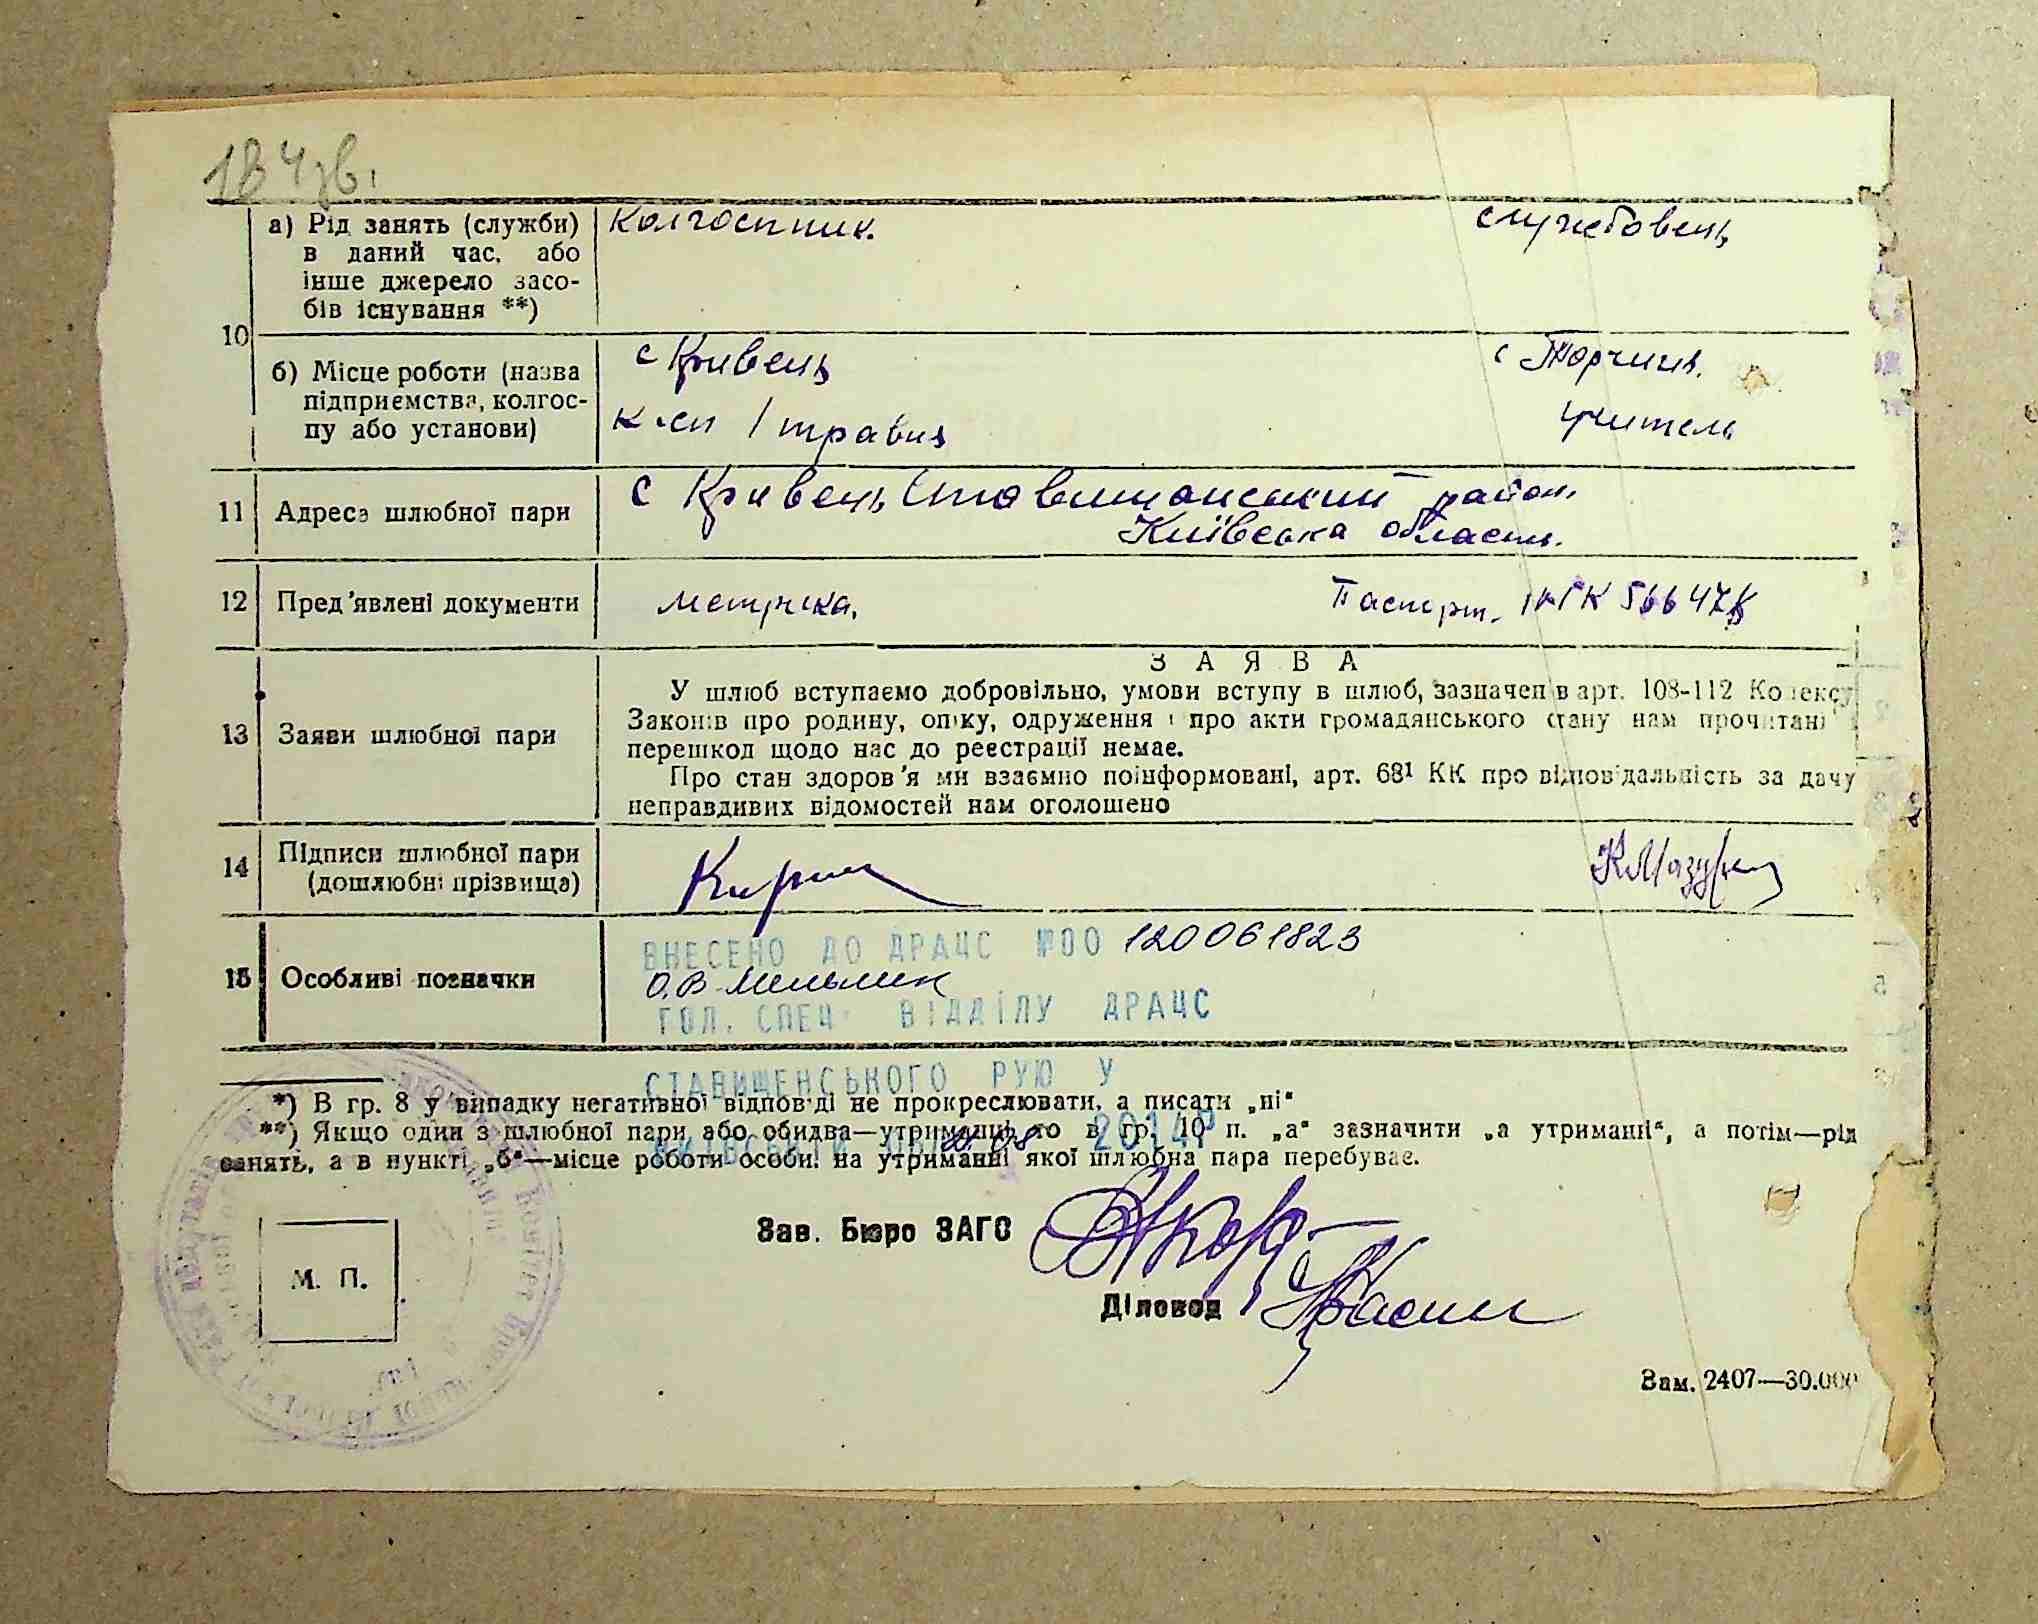 184 зв.
10
а) Рід занять (служби) в даний час, або інше джерело засобів існування **)
Колгоспник.
службовець
б) Місце роботи (назва підприємства, колгоспу або установи)
с Кривець
с Торчиця.
к-сп 1 травня
учитель
11
Адреса шлюбної пари
с Кривець Ставищанський район.
Київська область.
12
Пред'явлені документи
метрика.
Паспорт.
13
Заяви шлюбної пари
ЗАЯВА
У шлюб вступаємо добровільно, умови вступу в шлюб, зазначен в арт. 108-112 Кодексу
Законів про родину, опіку, одруження і про акти громадянського стану нам прочитані
перешкод щодо нас до реєстрації немає.
Про стан здоров'я ми взаємно поінформовані, арт. 68¹ КК про відповідальність за дачу
неправдивих відомостей нам оголошено
14
Підписи шлюбної пари
(дошлюбні прізвища)
15
Особливі позначки
ВНЕСЕНО ДО ДРАЦС №00 120061823
О.В. Мельник
ГОЛ. СПЕЦ. ВІДДІЛУ ДРАЦС
СТАВИЩЕНСЬКОГО РУЮ У
2014Р
*) В гр. 8 у випадку негативної відповіді не прокреслювати, а писати „ні“
**) Якщо один з шлюбної пари або обидва—утриманці, то в гр. 10 п. „а“ зазначити „а утриманні“, а потім—рід
занять, а в пункті „б“—місце роботи особи на утриманні якої шлюбна пара перебуває.
Зав. Бюро ЗАГС
М. П.
Діловод
Зам. 2407—30.000